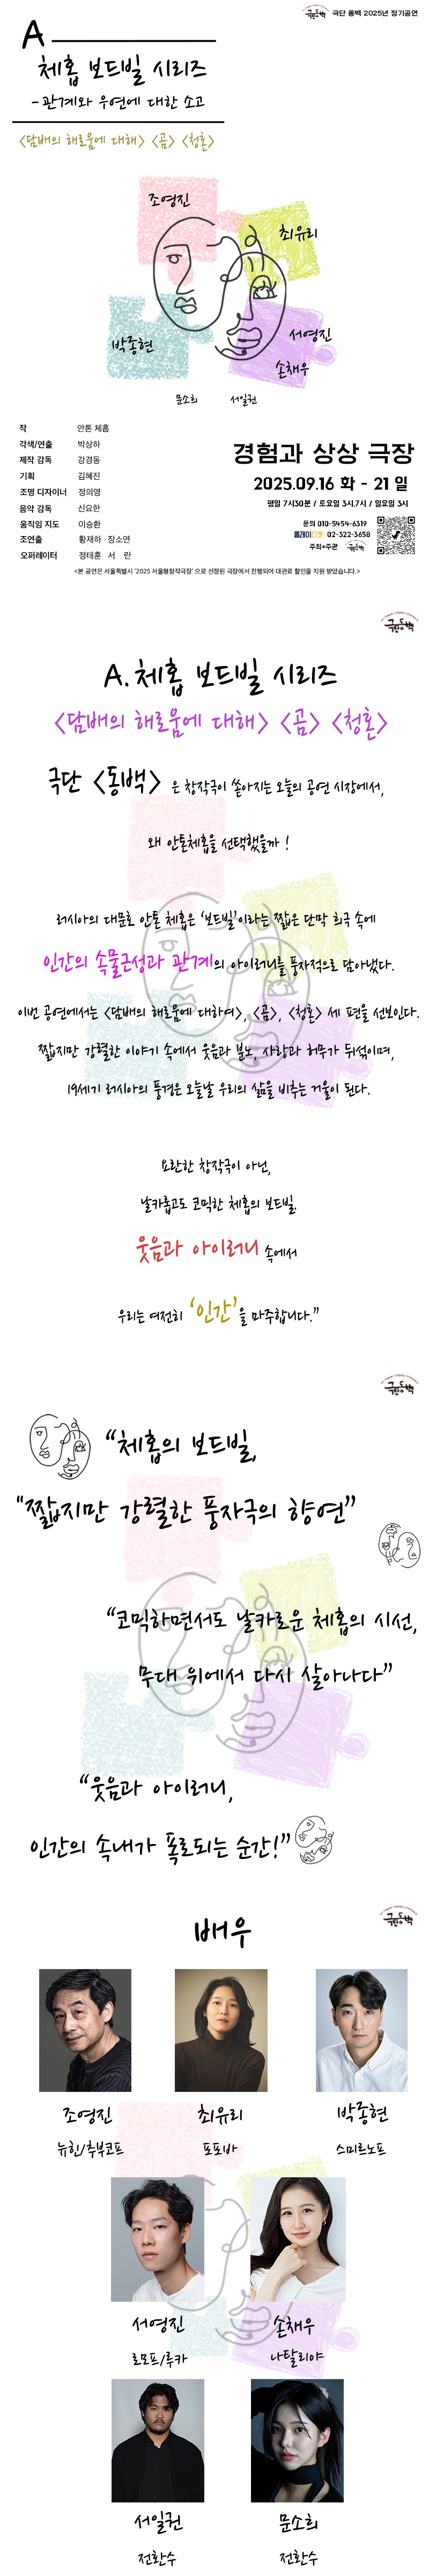 극단 동백 2025년 정기공연
A
체홉 보드빌 시리즈
-관계와 우연에 대한 소고
<담배의 해로움에 대해> <곰> <청혼>
조영진
최유리
박종현
서영진
손채우
문소희 서일권
작 안톤 체홉
각색/연출 박상하
제작 감독 강경동
기획 김혜진
조명 디자이너 정의영
음악 감독 신요한
움직임 지도 이승환
조연출 황재하 장소연
오퍼레이터 정태훈 서 란
경험과 상상 극장
2025.09.16 화 - 21 일
평일 7시30분 / 토요일 3시.7시 / 일요일 3시
문의 010-5454-6319
플레이티켓 02-322-3658
주최*주관 극단동백
<본 공연은 서울특별시 '2025 서울형창작극장' 으로 선정된 극장에서 진행되어 대관료 할인을 지원 받았습니다.>
극단동백
A. 체홉 보드빌 시리즈
<담배의 해로움에 대해> <곰> <청혼>
극단 <동백> 은 창작극이 쏟아지는 오늘의 공연 시장에서,
왜 안톤체홉을 선택했을까 !
러시아의 대문호 안톤 체홉은 '보드빌'이라는 짧은 단막 희극 속에
인간의 속물근성과 관계의 아이러니를 풍자적으로 담아냈다.
이번 공연에서는 <담배의 해로움에 대하여>, <곰>, <청혼> 세 편을 선보인다.
짧지만 강렬한 이야기 속에서 웃음과 분노, 사랑과 허무가 뒤섞이며,
19세기 러시아의 풍경은 오늘날 우리의 삶을 비추는 거울이 된다.
요란한 창작극이 아닌,
날카롭고도 코믹한 체홉의 보드빌.
웃음과 아이러니 속에서
우리는 여전히 '인간'을 마주합니다."
극단동백
"체홉의 보드빌,
"짧지만 강렬한 풍자극의 향연"
"코믹하면서도 날카로운 체홉의 시선,
무대 위에서 다시 살아나다"
"웃음과 아이러니,
인간의 속내가 폭로되는 순간!"
극단동백
배우
조영진 최유리 박종현
뉴힌/추부코프 포포바 스미르노프
서영진 손채우
로모프/루카 나탈리야
서일권 문소희
전환수 전환수